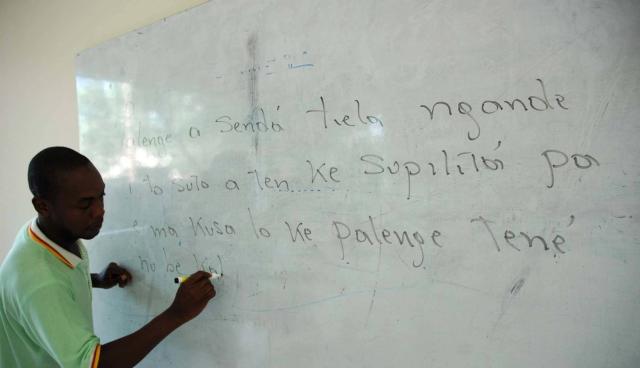 a sendá tiela ngande
to suto a ten ke supilitá pa
ma kusa lo ke palenge tené